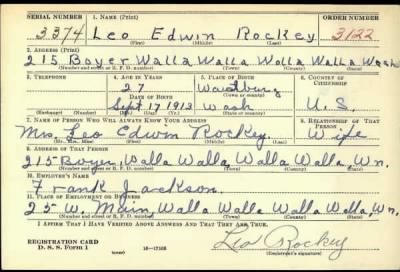 SERIAL NUMBER 1. NAME (Print) ORDER NUMBER
3374 Leo Edwin Rockey 3122
(First) (Middle) (Last)
2. ADDRESS (Print)
215 Boyer Walla Walla Walla Walla Wash
(Number and street or R. F. D. number) (Town) (County) (State)
3. TELEPHONE 4. AGE IN YEARS 5. PLACE OF BIRTH 6. COUNTRY OF CITIZENSHIP
27
DATE OF BIRTH (Town or county)
Sept 17 1913 Wash U.S.
(Exchange) (Number) (Mo.) (Day) (Yr.) (State or country)
7. NAME OF PERSON WHO WILL ALWAYS KNOW YOUR ADDRESS 8. RELATIONSHIP OF THAT PERSON
Mrs. Leo Edwin Rockey. Wife
(Mr., Mrs., Miss) (First) (Middle) (Last)
9. ADDRESS OF THAT PERSON
215 Boyer, Walla Walla, Walla Walla, Wn.
(Number and street or R. F. D. number) (Town) (County) (State)
10. EMPLOYER'S NAME
Frank Jackson.
11. PLACE OF EMPLOYMENT OR BUSINESS
25 W. Main, Walla Walla Walla Walla, Wn.
(Number and street or R. F. D. number) (Town) (County) (State)
I AFFIRM THAT I HAVE VERIFIED ABOVE ANSWERS AND THAT THEY ARE TRUE.
Leo Rockey
REGISTRATION CARD
D. S. S. Form 1 (over) 16-17105 (Registrant's signature)